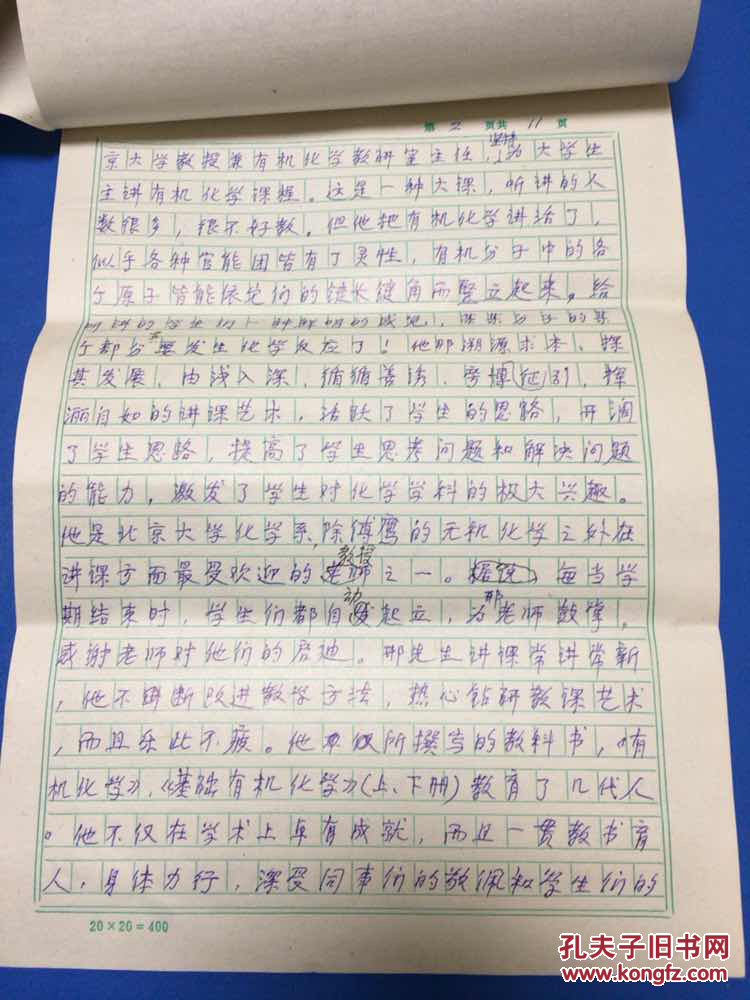 第 2 页共 11 页
坚持
京大学教授兼有机化学教研室主任，为大学生
主讲有机化学课程。这是一种大课，听讲的人
数很多，很不好教。但他把有机化学讲活了，
似乎各种官能团皆有了灵性，有机分子中的各
个原子皆能依它们的键长键角而竖立起来。给
个都分要发生化学反应了！他那溯源求本，探
其发展，由浅入深，循循善诱，旁博征引，挥
洒自如的讲课艺术，活跃了学生的思路，开阔
了学生思路，提高了学生思考问题和解决问题
的能力，激发了学生对化学学科的极大兴趣。
他是北京大学化学系，除傅鹰的无机化学之外在
教授
讲课方面最受欢迎的老师之一。据说，每当学
动 邢
期结束时，学生们都自发起立，为老师鼓掌，
感谢老师对他们的启迪。邢先生讲课常讲常新
，他不断改进教学方法，热心钻研教课艺术
，而且乐此不疲。他所撰写的教科书，《有
机化学》，《基础有机化学》（上、下册）教育了几代人
。他不仅在学术上卓有成就，而且一贯教书育
人，身体力行，深受同事们的敬佩和学生们的
20×20=400
孔夫子旧书网
kongfz.com